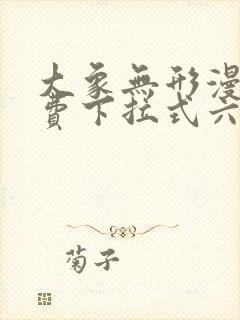 大象無形漫
費下拉式六
菊子